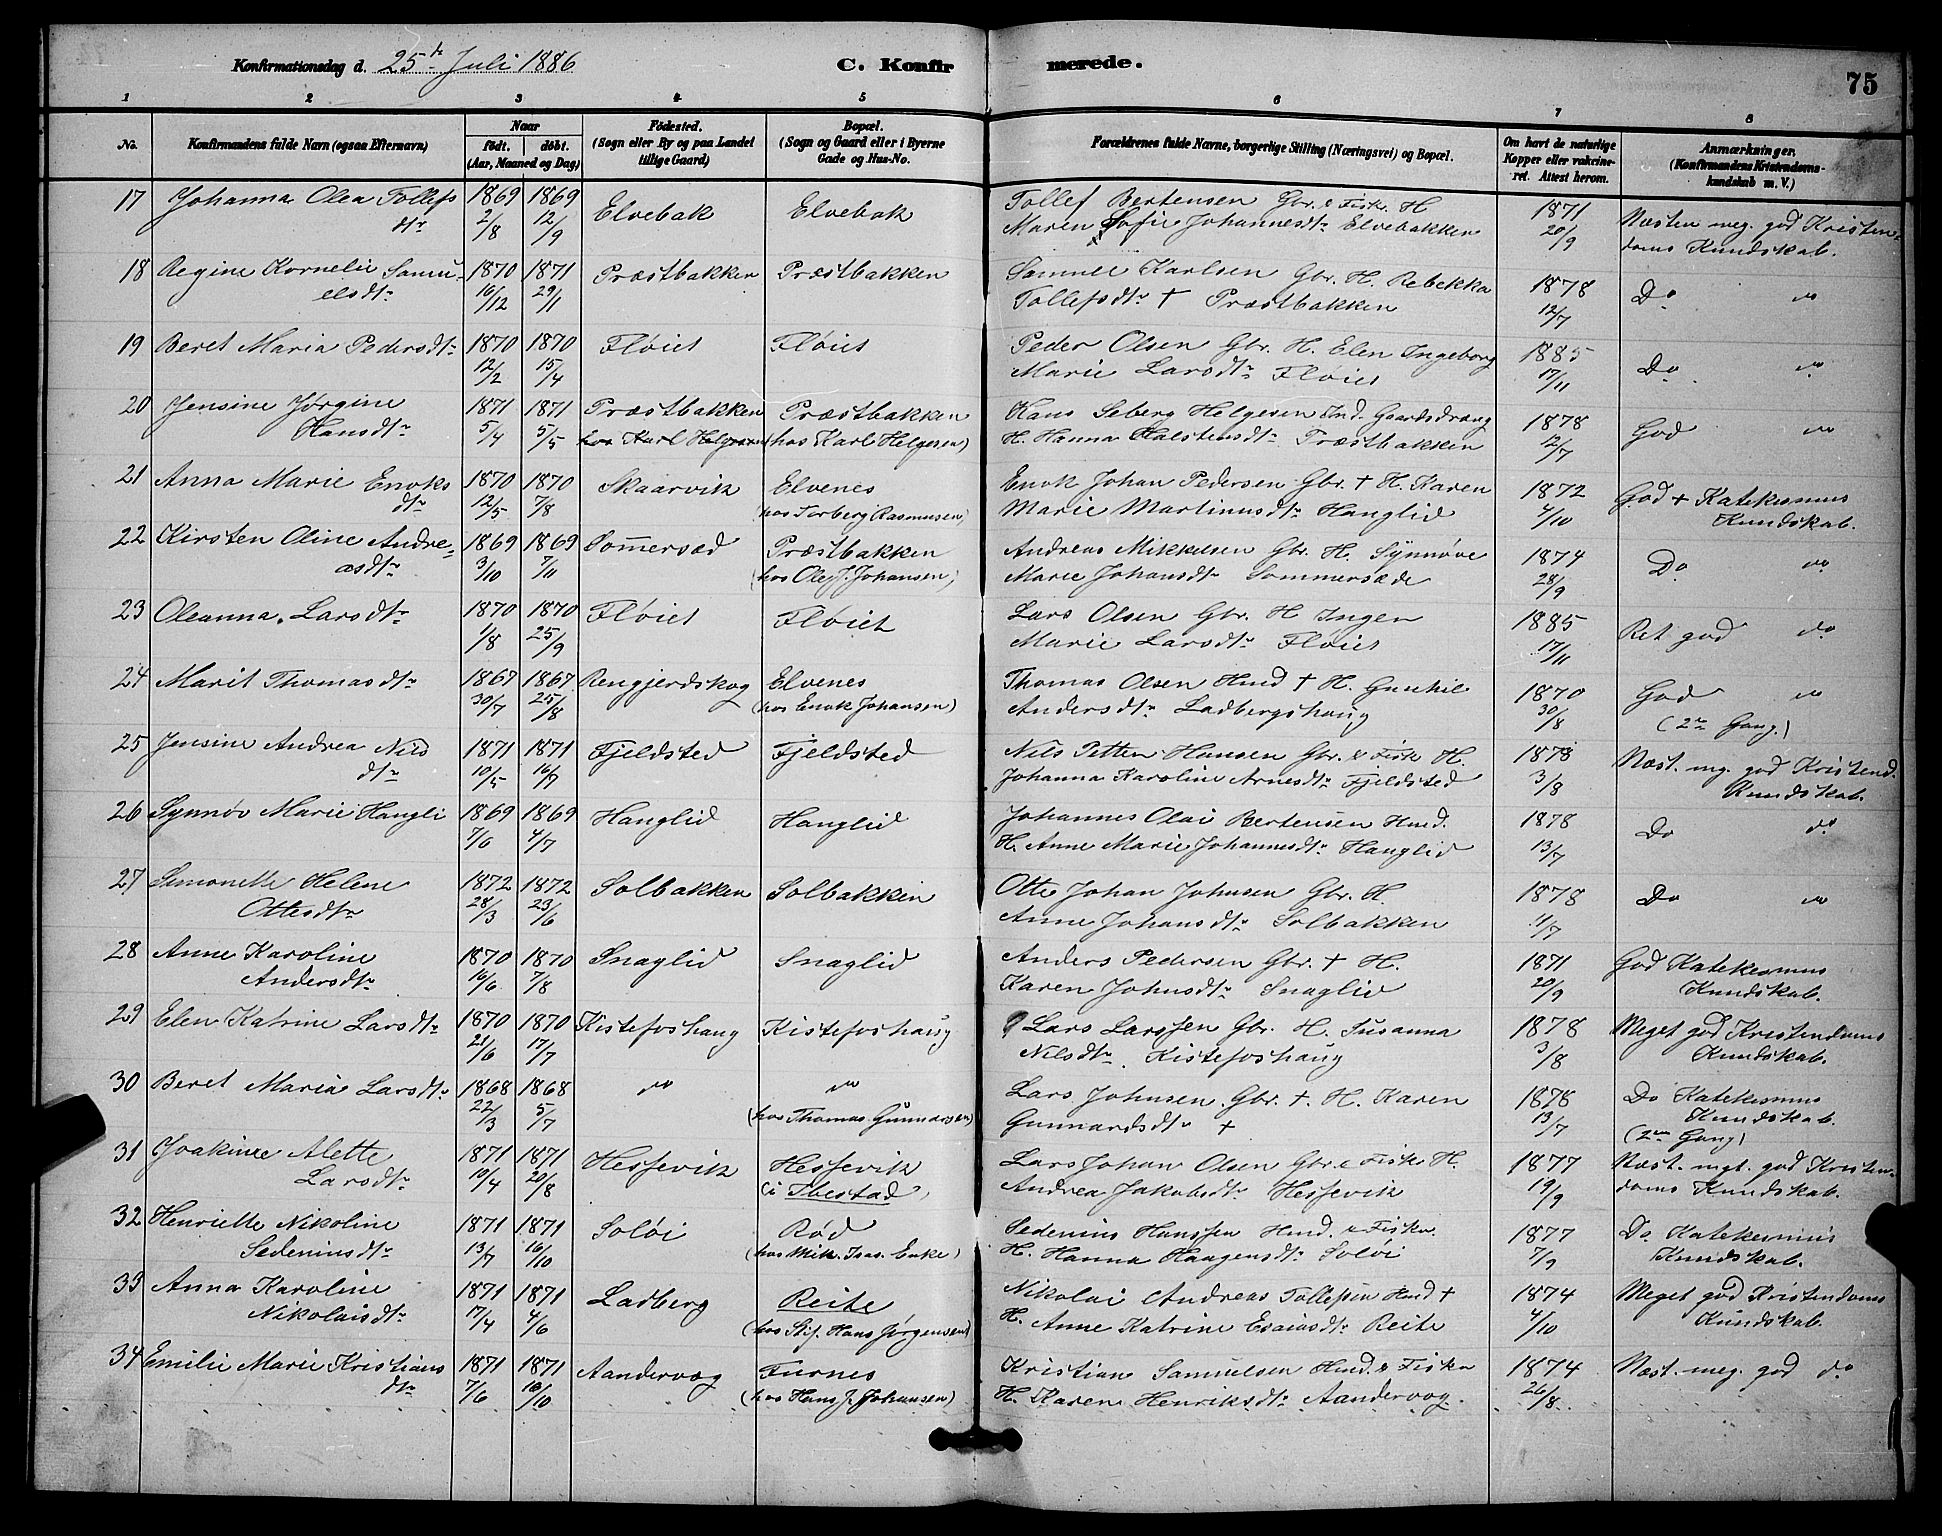 Konfirmationsdag d. 25de Juli 1886
C. Konfirmerede.
75
1 2 3 4 5 6 7 8
No.
Konfirmandens fulde Navn (ogsaa Efternavn)
Naar
födt. döbt.
(Aar, Maaned og Dag)
Födested.
(Sogn eller By og paa Landet tillige Gaard)
Bopæl.
(Sogn og Gaard eller i Byerne Gade og Hus-No.
Forældrenes fulde Navne, borgerlige Stilling (Næringsvei) og Bopæl.
Om havt de naturlige Kopper eller vakcineret. Attest herom.
Anmærkninger.
(Konfirmandens Kristendomskundskab m. V.)
17 Johanna Olea Tollefs 1869 1869 Elvebak Elvebak Tollef Bertensen Gbr. & Fisk. H 1871 Næsten meg. god Kristen-
dtr 2/8 12/9 Maren Sofie Johannesdtr Elvebakken 20/9 doms Kundskab.
18 Regine Kornelie Samu- 1870 1871 Præstbakken Præstbakken Samuel Karlsen Gbr. H. Rebekka 1878 Do "
elsdtr 16/12 29/1 Tollefsdtr + Præstbakken 12/7
19 Beret Maria Pedersdtr 1870 1870 Fløiet Fløiet Peder Olsen Gbr. H. Elen Ingeborg 1885 Do "
12/2 15/4 Marie Larsdtr Fløiet 17/11
20 Jensine Jørgine 1871 1871 Præstbakken Præstbakken Hans Seberg Helgesen Ind. Gaardsdræng 1878 God "
Hansdtr 5/4 5/5 hos Karl Helgesen (hos Karl Helgesen) H. Hanna Halstensdtr Præstbakken 12/7
21 Anna Marie Enoks 1870 1870 Skaarvik Elvenes Enok Johan Pedersen Gbr. + H. Karen 1872 God + Katekesmus
dtr 12/5 7/8 (hos Torberg Rasmusen) Marie Martinusdtr Hanglid 4/10 Kundskab.
22 Kirsten Oline Andre- 1869 1869 Sommersæd Præstbakken Andreas Mikkelsen Gbr. H. Synnøve 1874 Do "
asdtr 3/10 7/11 (hos Ole J. Johansen) Marie Johansdtr Sommersæde 28/9
23 Oleanna Larsdtr 1870 1870 Fløiet Fløiet Lars Olsen Gbr. H Ingen 1885 Ret god do
1/8 25/9 Marie Larsdtr Fløiet 17/11
24 Marit Thomasdtr 1867 1867 Rengjerdskog Elvenes Thomas Olsen Hmd + H. Gunhil 1870 God "
30/7 25/8 (hos Enok Johansen) Andersdtr Ladbergshaug 30/8 (2en Gang.)
25 Jensine Andrea Nils 1871 1871 Fjeldsted Fjeldsted Nils Petter Hansen Gbr. & Fisk H. 1878 Næst. mg. god Kristend.
dtr 10/5 16/7 Johanna Karoline Arnesdtr Fjeldsted 3/8 Kundskab.
26 Synnøv Marie Hangli 1869 1869 Hanglid Hanglid Johannes Olai Bertensen Hmd. 1878 Do do
7/6 4/7 H. Anne Marie Johannesdtr Hanglid 13/7
27 Simonette Helene 1872 1872 Solbakken Solbakken Otte Johan Johnsen Gbr. H. 1878 Do "
Ottesdtr 28/3 23/6 Anne Johansdtr Solbakken 11/7
28 Anne Karoline 1870 1870 Snaglid Snaglid Anders Pedersen Gbr. + H. 1871 God Katekesmus
Andersdtr 16/6 7/8 Karen Johnsdtr Snaglid 20/9 Kundskab.
29 Elen Katrine Larsdtr 1870 1870 Kistefoshaug Kistefoshaug Lars Larssen Gbr. H. Susanna 1878 Meget god Kristendoms
21/6 17/7 Nilsdtr. Kistefoshaug 3/8 Kundskab.
30 Beret Maria Larsdtr 1868 1868 " " Lars Johnsen Gbr. +. H. Karen 1878 Do Katekesmus
22/3 5/7 (hos Thomas Gunnarsen) Gunnardsdtr + 13/7 Kundskab.
(2en Gang)
31 Joakine Alette 1871 1871 Hessevik Hessevik Lars Johan Olsen Gbr. & Fisk H. 1877 Næst. mgt. god Kristen-
Larsdtr 19/4 20/8 (i Ibestad) Andrea Jakobsdtr Hessevik 19/9 doms Kundskab.
32 Henriette Nikoline 1871 1871 Soløi Rød Sedenius Hanssen Hmd. & Fisker 1877 Do Katekesmus
Sedeniusdtr 13/7 16/10 (hos Mik. Isas. Enke) H. Hanna Haagensdtr Soløi 7/9 Kundskab.
33 Anna Karoline 1871 1871 Ladberg Reite Nikolai Andreas Tollefsen Hmd + 1874 Meget god Kristendoms
Nikolaisdtr 17/4 4/6 (hos Stif. Hans Jørgensen) H. Anne Katrine Esaiasdtr Reite 4/10 Kundskab.
34 Emilie Marie Kristians 1871 1871 Aandervag Furnes Kristian Samuelsen Hmd. & Fisker 1874 Næst. meg. god do
dtr 7/6 10/10 (hos Hans J. Johansen) H. Karen Henriksdtr Aandervog 26/8